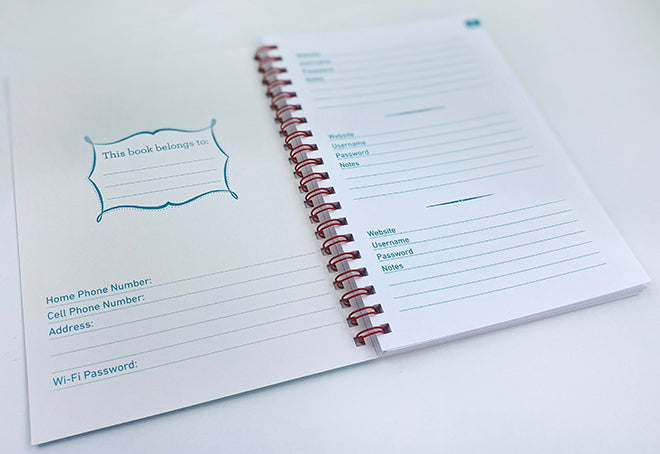 This book belongs to:
Home Phone Number:
Cell Phone Number:
Address:
Wi-Fi Password:
Website
Username
Password
Notes
Website
Username
Password
Notes
Website
Username
Password
Notes